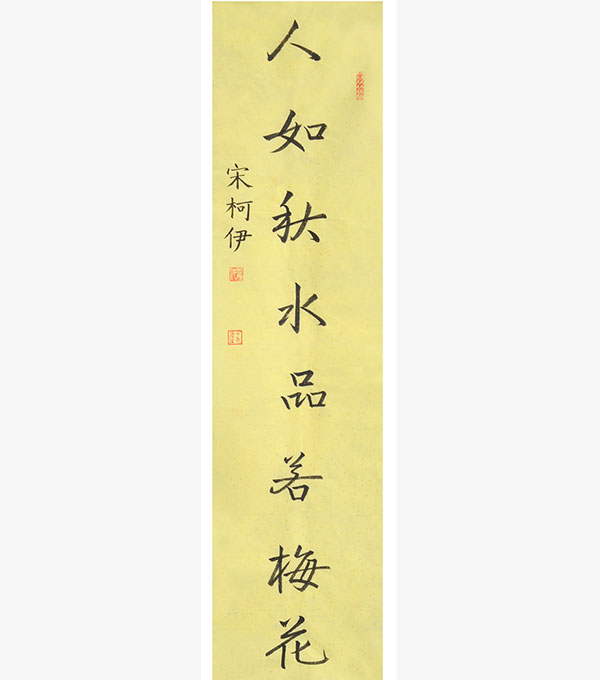 人如秋水品若梅花
宋柯伊